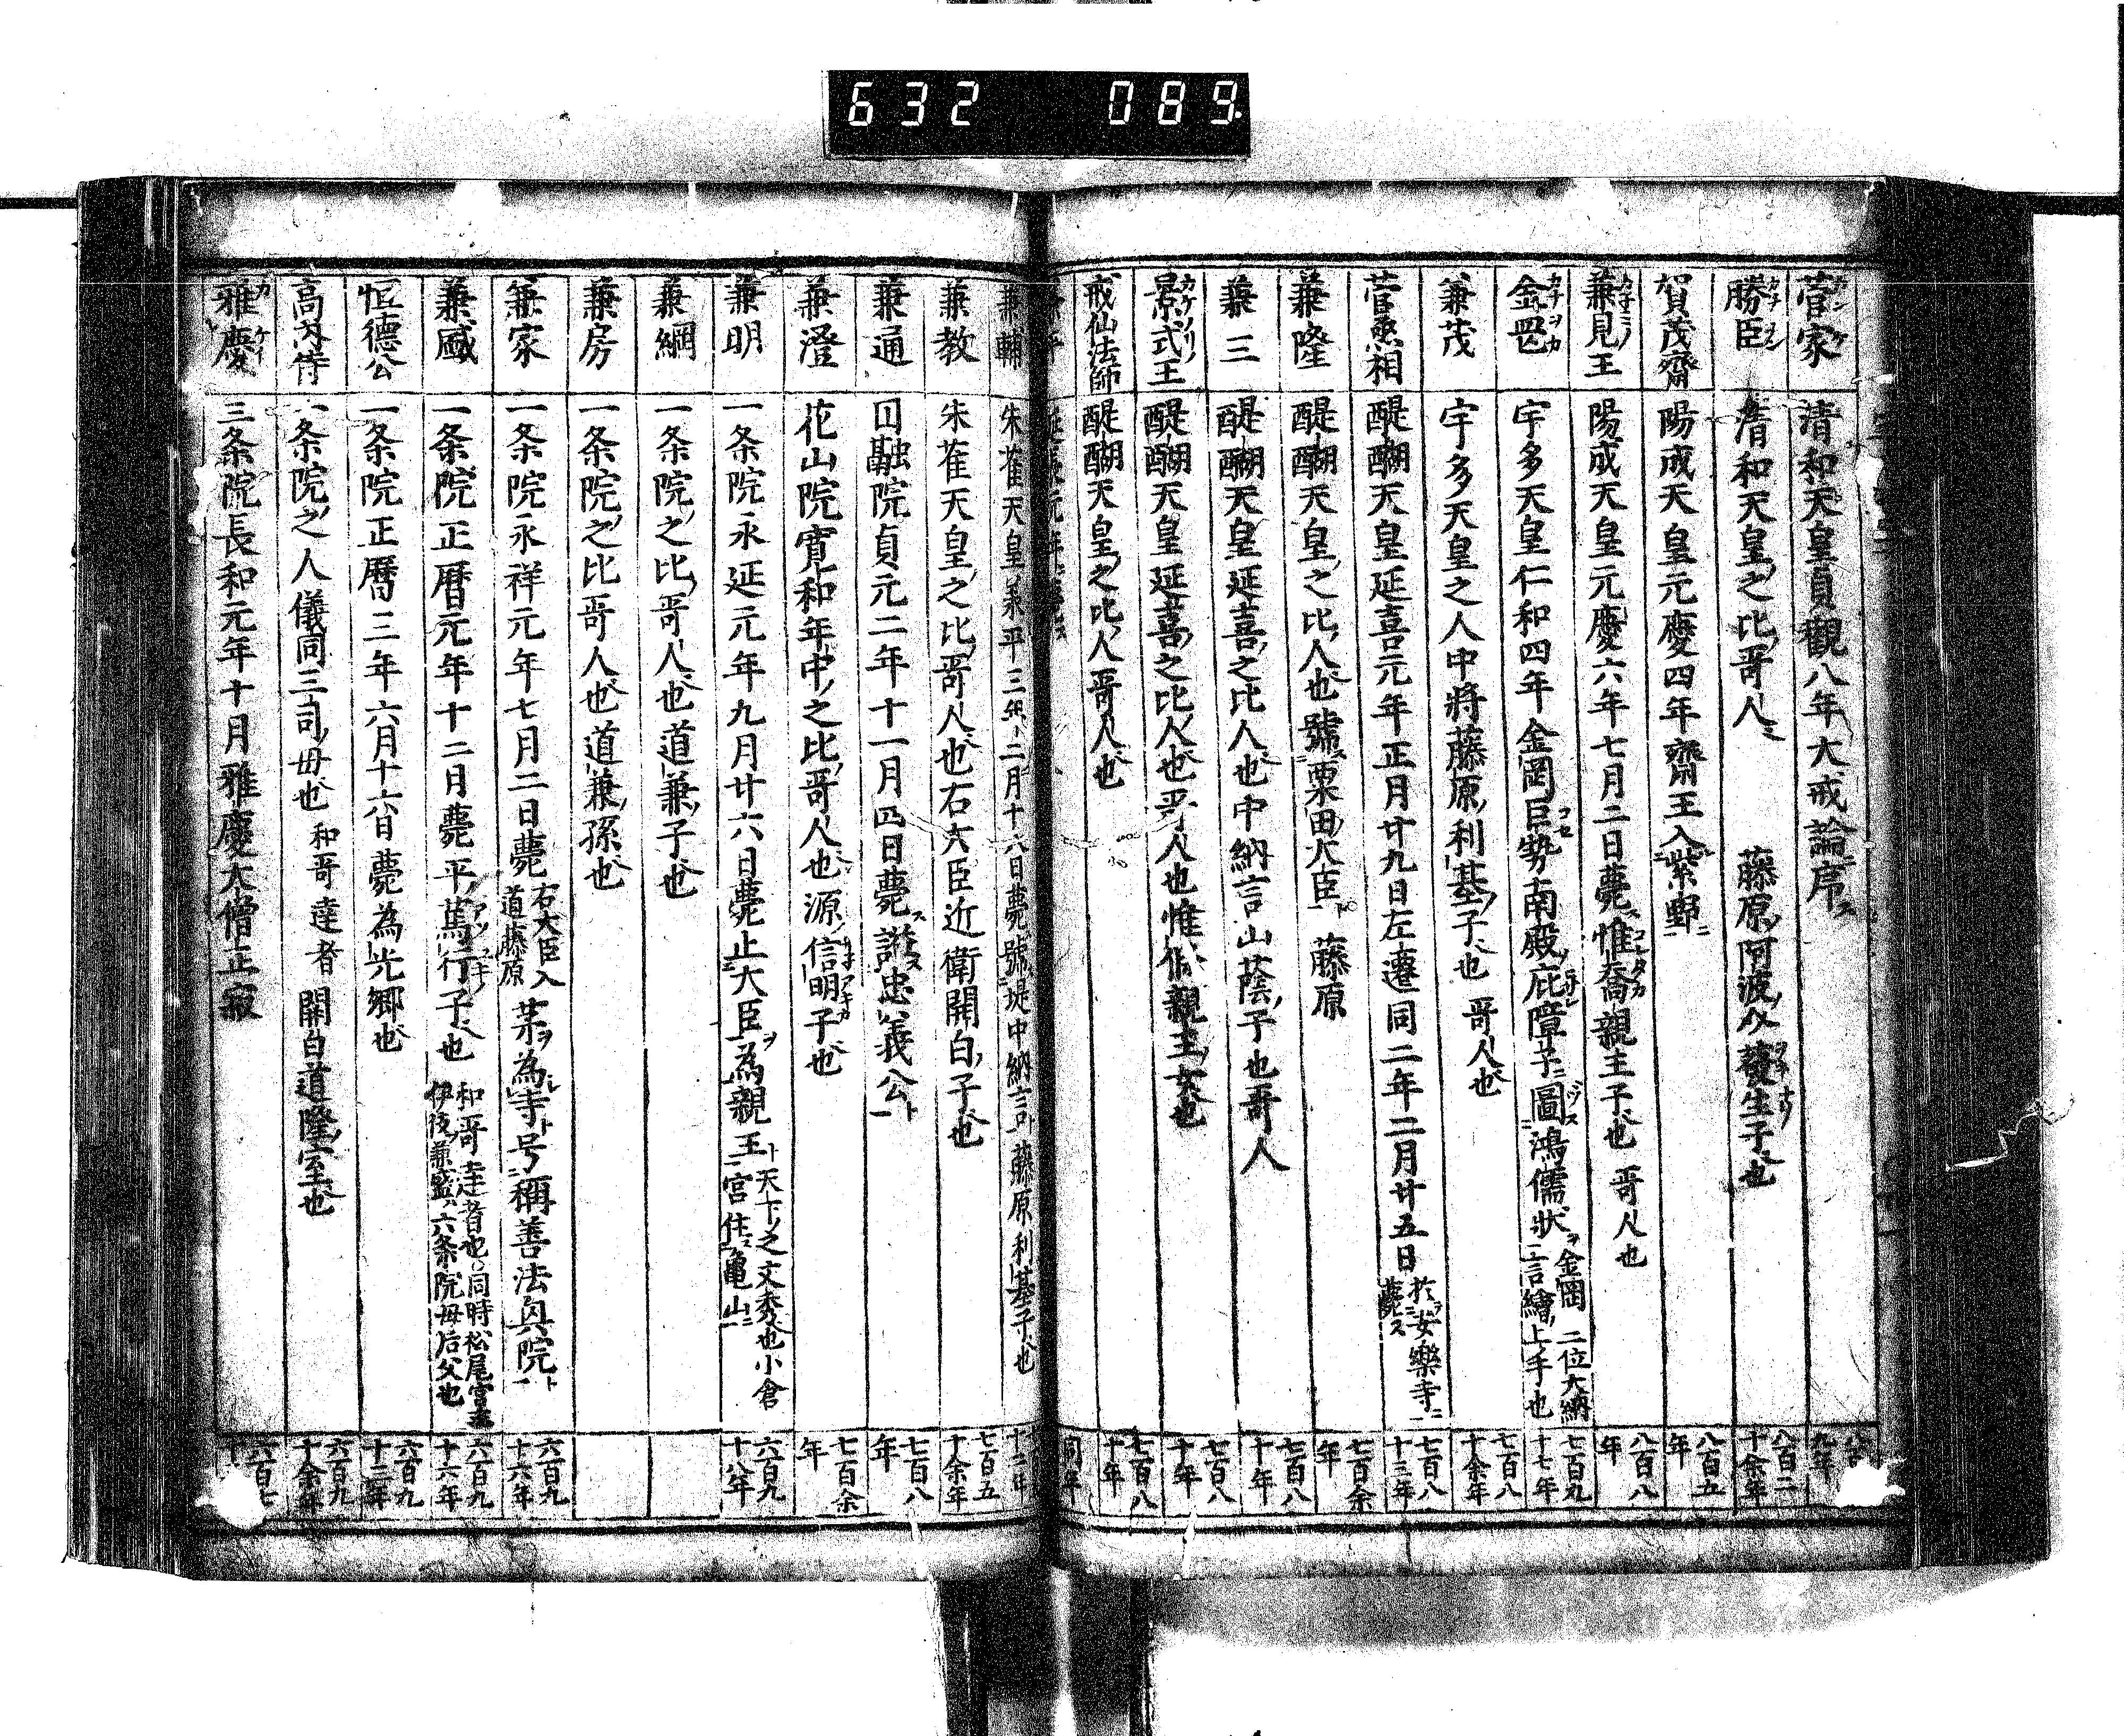 632 089.
菅家 清和天皇貞観八年大戒論序ス 九年
勝臣 清和天皇之比哥人ミ 藤原阿波 發生子也 八百二十余年
賀茂齋 陽成天皇元慶四年齋王入紫野ニ 八百五年
兼見王 陽成天皇元慶六年七月二日薨ス惟喬親王子也 哥人也 八百八年
金岡 宇多天皇仁和四年金岡巨勢南殿庇障子ニ圖鴻儒狀ヲ 金岡 二位大納言繪上手也 七百九十七年
兼茂 宇多天皇之人中将藤原利基子也 哥人也 七百八十余年
菅丞相 醍醐天皇延喜元年正月廿九日左遷同二年二月廿五日於安樂寺ニ薨ス 七百八十三年
兼隆 醍醐天皇之比人也號粟田大臣ト 藤原 七百余年
兼三 醍醐天皇延喜之比人也中納言山蔭子也哥人 七百八十年
景式王 醍醐天皇延喜之比人也哥人也惟條親王ノ也 七百八十年
戒仙法師 醍醐天皇之比人哥人也 七百八十年
延長元年 同年
兼輔 朱雀天皇兼平三年二月十八日薨號堤中納言ト藤原利基子也 十二年
兼教 朱雀天皇之比哥人也右大臣近衛開白子也 七百五十余年
兼通 囙融院貞元二年十一月四日薨ス謚忠義公ト 七百八年
兼澄 花山院寛和年中之比哥人也源信明子也 七百余年
兼明 一条院永延元年九月廿六日薨止大臣ヲ為親王ト 天下之文秀也小倉宮住亀山ニ 六百九十八年
兼綱 一条院之比哥人也道兼子也
兼房 一条院之比哥人也道兼孫也
兼家 一条院永祥元年七月二日薨 右大臣入道藤原 某ヲ為寺ト号稱善法興院ト 六百九十六年
兼盛 一条院正暦元年十二月薨平篤行子也 和哥達者也同時松尾宮 伊後兼盛六条院母后父也 六百九十六年
恒徳公 一条院正暦三年六月十六日薨為光郷也 六百九十三年
高内侍 一条院之人儀同三司母也 和哥達者 開白道隆室也 六百九十余年
雅慶 三条院長和元年十月雅慶大僧正寂 六百七十